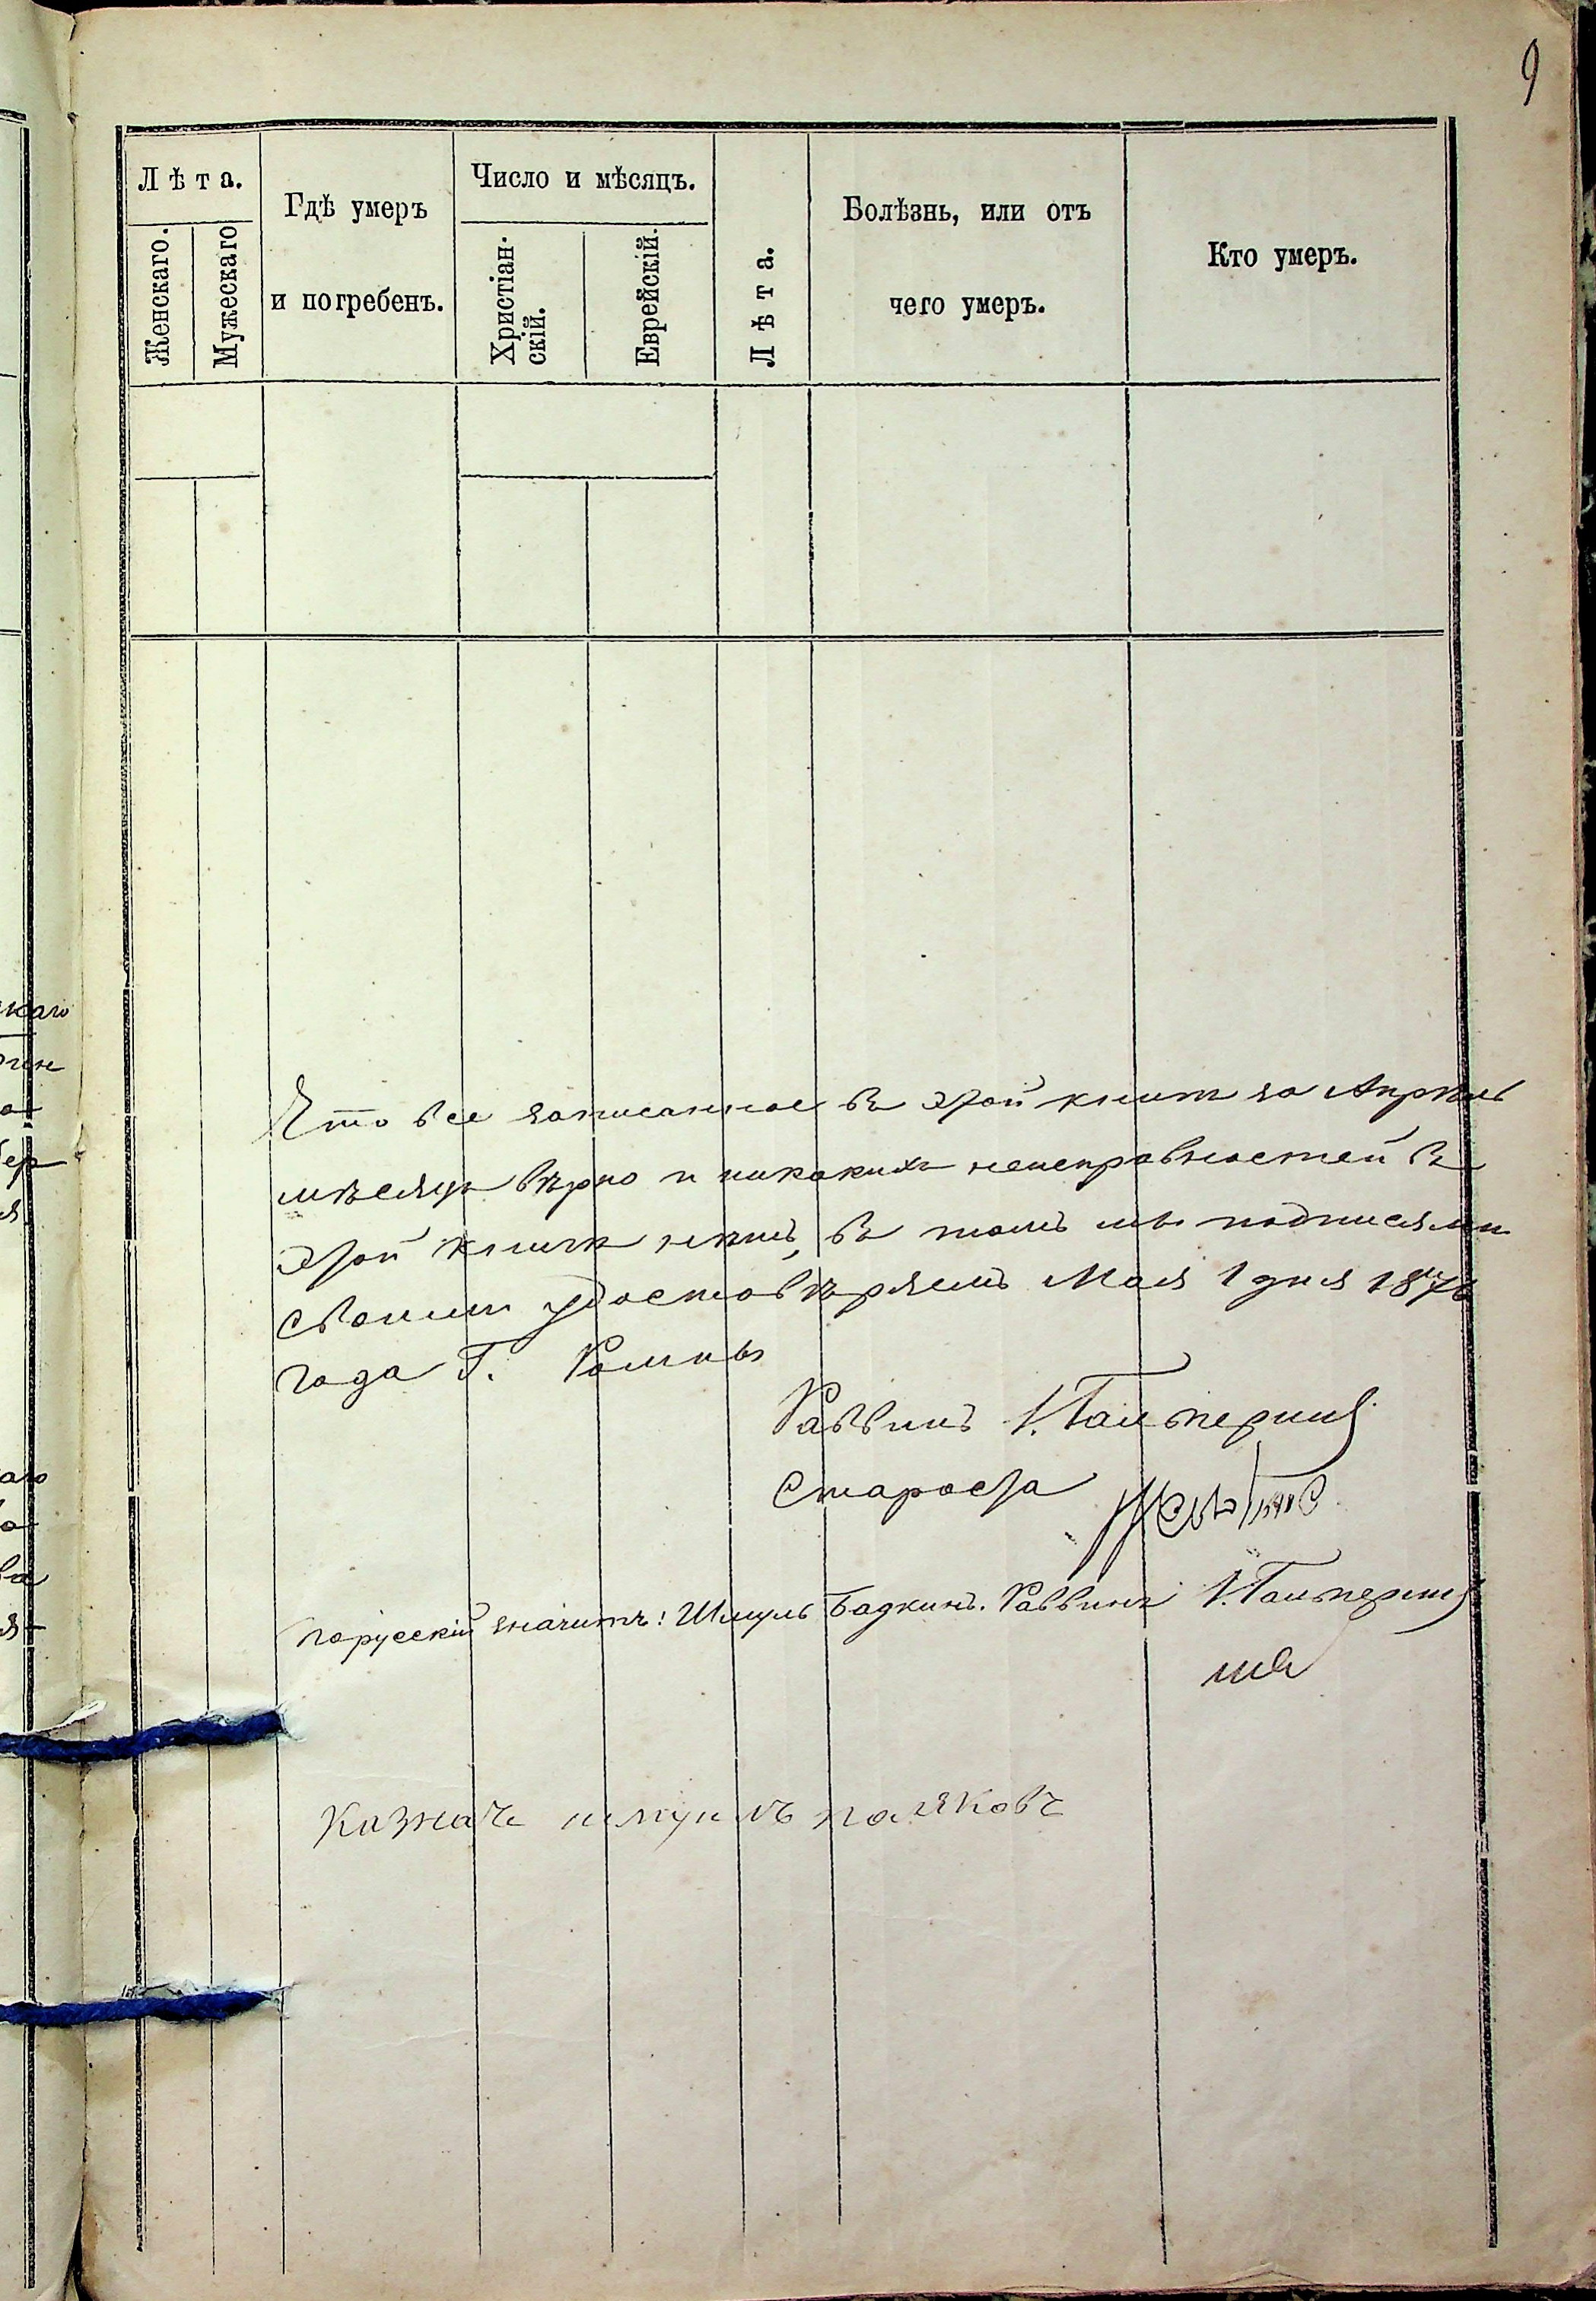 9
Лѣта.
Женскаго.
Мужескаго
Гдѣ умеръ
и погребенъ.
Число и мѣсяцъ.
Христіан-
скій.
Еврейскій.
Лѣта.
Болѣзнь, или отъ
чего умеръ.
Кто умеръ.
Что все записанное въ этой книгѣ за Апрѣль
мѣсяцъ вѣрно и никакихъ неисправностей въ
этой книгѣ нѣтъ, въ томъ мы подписями
своими удостовѣряемъ Мая 1 дня 1876
года Г. Ромны
Раввинъ І. Гальперинъ
Староста
порусскій значитъ: Шмуль Бадкинъ. Раввинъ І. Гальперинъ
Казначе шмуилъ поляковъ